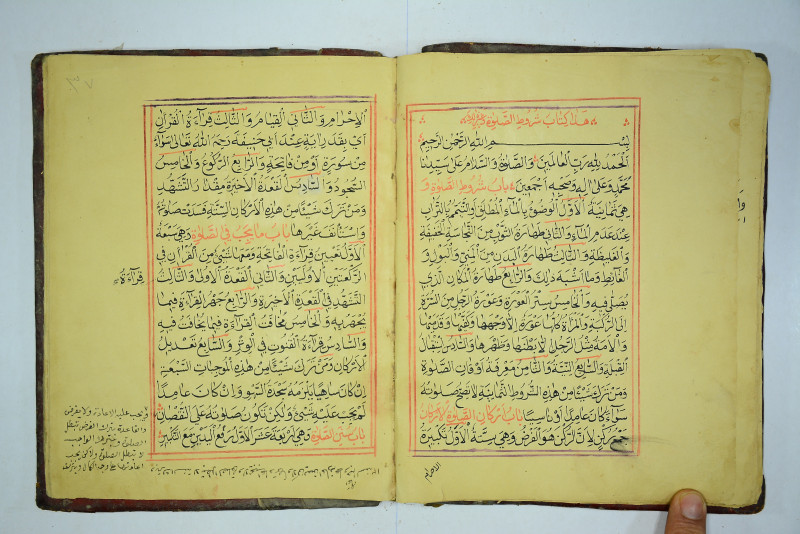 هذا كتاب شروط الصلوة
بسم الله الرحمن الرحيم
الحمد لله رب العالمين والصلوة والسلام على سيدنا
محمد وعلى اله وصحبه اجمعين باب شروط الصلوة و
هي ثمانية الاول الوضوء بالماء المطلق والتيمم بالتراب
عند عدم الماء والثاني طهارة الثوب من النجاسة الخفيفة
والغليظة والثالث طهارة البدن من المني والبول و
الغائط وما اشبه ذلك والرابع طهارة المكان الذي
يصلي فيه والخامس ستر العورة وعورة الرجل من السرة
الى الركبة والمرأة كلها عورة الا وجهها وكفيها وقدميها
والامة مثل الرجل الا بطنها وظهرها والسادس استقبال
القبلة والسابع النية والثامن معرفة اوقات الصلوة
ومن ترك شيئا من هذه الشروط الثمانية لا تصح صلوته
سواء كان عامدا او ناسيا باب اركان الصلوة الاركان
جمع ركن لان الركن هو الفرض وهي ستة الاول تكبيرة
الاحرام
الاحرام والثاني القيام والثالث قراءة القران
اي بقدر اية عند ابي حنيفة رحمه الله تعالى سواء
من سورة او من فاتحة والرابع الركوع والخامس
السجود والسادس القعدة الاخيرة مقدار التشهد
ومن ترك شيئا من هذه الاركان الستة فسد صلوته
واستانف غيرها باب ما يجب في الصلوة وهي سبعة
الاول تعيين قراءة الفاتحة ومعها شئ من القران في
الركعتين الاوليين والثاني القعدة الاولى والثالث
التشهد في القعدة الاخيرة والرابع جهر القراءة فيما
يجهر به والخامس مخافت القراءة فيما يخافت فيه
والسادس قراءة القنوت في الوتر والسابع تعديل
الاركان ومن ترك شيئا من هذه الموجبات السبعة
ان كان ساهيا يلزمه سجدة السهو وان كان عامدا
لم يجب عليه شئ ولكن تكون صلوته على النقصان
باب سنن الصلوة وهي اربعة عشر الاول رفع اليدين مع التكبير
قراءة
ويجب عليه الاعادة ولا يفرض
والقاعدة بترك الفرض تبطل
الصلوة وبترك الواجب
لا تبطل الصلوة ولكن يجب